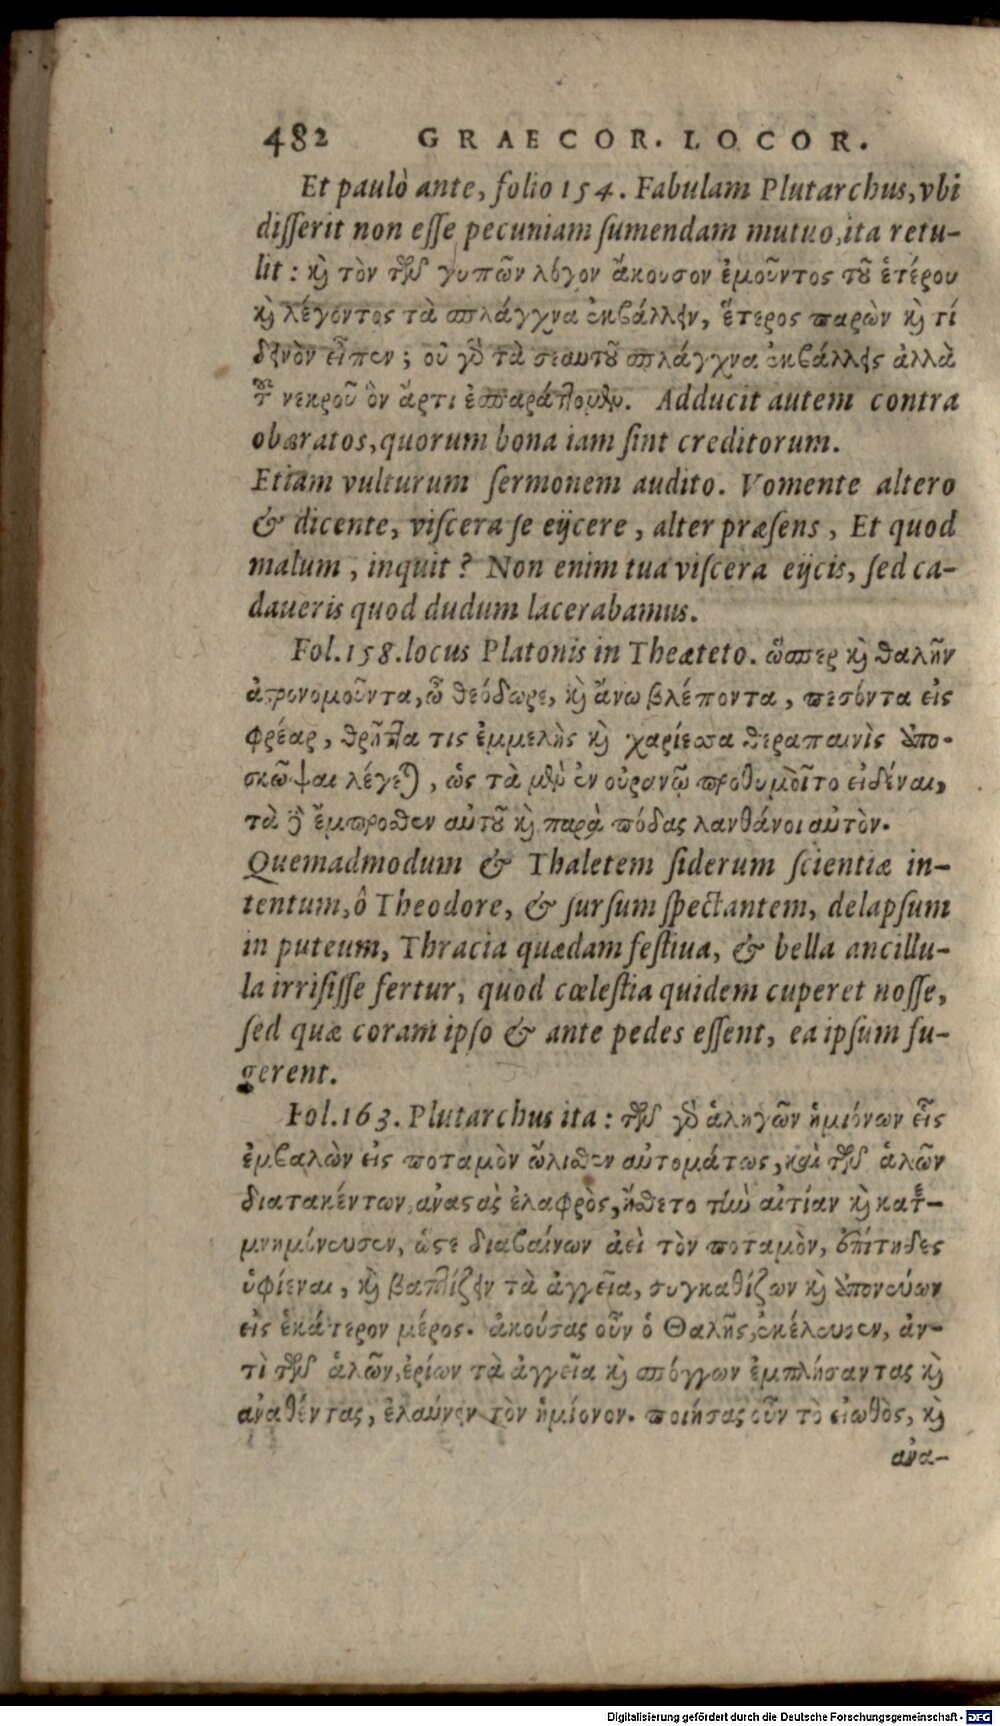 482 GRAECOR. LOCOR.
Et paulò ante, folio 154. Fabulam Plutarchus, vbi
disserit non esse pecuniam sumendam mutuo, ita retu-
lit: καὶ τὸν τῶν γυπῶν λόγον ἄκουσον ἐμοῦντος τοῦ ἑτέρου
καὶ λέγοντος τὰ σπλάγχνα ἐκβάλλειν, ἕτερος παρὼν καὶ τί
δεινὸν εἶπεν; οὐ γὰρ τὰ σεαυτοῦ σπλάγχνα ἐκβάλλεις ἀλλὰ
τοῦ νεκροῦ ὃν ἄρτι ἐσπαράττομεν. Adducit autem contra
obæratos, quorum bona iam sint creditorum.
Etiam vulturum sermonem audito. Vomente altero
& dicente, viscera se eijcere, alter præsens, Et quod
malum, inquit? Non enim tua viscera eijcis, sed ca-
daueris quod dudum lacerabamus.
Fol. 158. locus Platonis in Theæteto. ὥσπερ καὶ θαλῆν
ἀστρονομοῦντα, ὦ θεόδωρε, καὶ ἄνω βλέποντα, πεσόντα εἰς
φρέαρ, θρῆττα τις ἐμμελὴς καὶ χαρίεσσα θεραπαινὶς ὑπο-
σκῶψαι λέγεται, ὡς τὰ μὲν ἐν οὐρανῷ προθυμοῖτο εἰδέναι,
τὰ δὲ ἔμπροσθεν αὐτοῦ καὶ παρὰ πόδας λανθάνοι αὐτὸν.
Quemadmodum & Thaletem siderum scientiæ in-
tentum, ô Theodore, & sursum spectantem, delapsum
in puteum, Thracia quædam festiua, & bella ancillu-
la irrisisse fertur, quod cœlestia quidem cuperet nosse,
sed quæ coram ipso & ante pedes essent, ea ipsum fu-
gerent.
Fol. 163. Plutarchus ita: τῶν γὰρ ἁληγῶν ἡμιόνων εἷς
ἐμβαλὼν εἰς ποταμὸν ὤλισθεν αὐτομάτως, καὶ τῶν ἁλῶν
διατακέντων ἀναστὰς ἐλαφρὸς, ᾔσθετο τὴν αἰτίαν καὶ κατε-
μνημόνευσεν, ὥστε διαβαίνων ἀεὶ τὸν ποταμὸν, ἐπίτηδες
ὑφίεναι, καὶ βαπτίζειν τὰ ἀγγεῖα, συγκαθίζων καὶ ὑπονεύων
εἰς ἑκάτερον μέρος. ἀκούσας οὖν ὁ Θαλῆς, ἐκέλευσεν, ἀν-
τὶ τῶν ἁλῶν, ἐρίων τὰ ἀγγεῖα καὶ σπόγγων ἐμπλήσαντας καὶ
ἀναθέντας, ἐλαύνειν τὸν ἡμίονον. ποιήσας οὖν τὸ εἰωθὸς, καὶ
ἀνα-
Digitalisierung gefördert durch die Deutsche Forschungsgemeinschaft - DFG